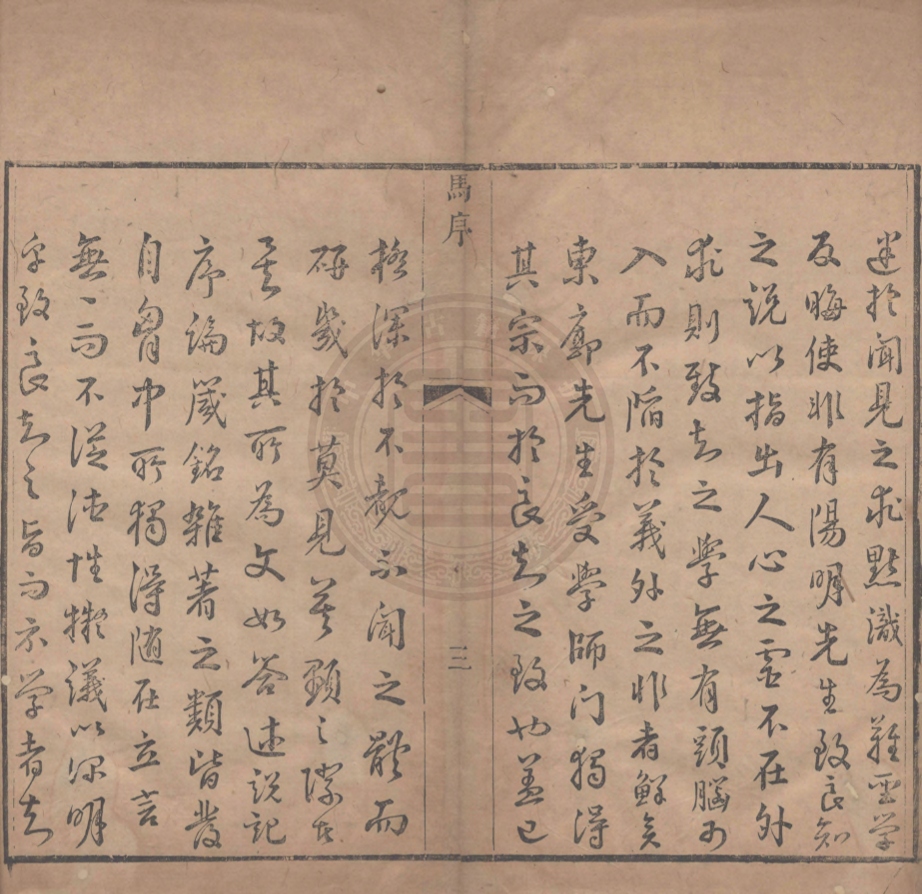 迷於聞見之求點識為難聖学
反晦使非有陽明先生致良知
之説以指出人心之靈不在外
求則致知之學無有頭腦可
入而不陷於義外之非者鮮矣
東廓先生受學師门獨得
其宗而於良知之致也蓋已
馬序
三
極深於不覩不聞之體而
研幾於莫見莫顯之際者
矣故其所為文如答述説記
序論箴銘雜著之類皆發
自胷中所獨得随在立言
無一而不從德性擬議以深明
乎致良知之旨而示学者知